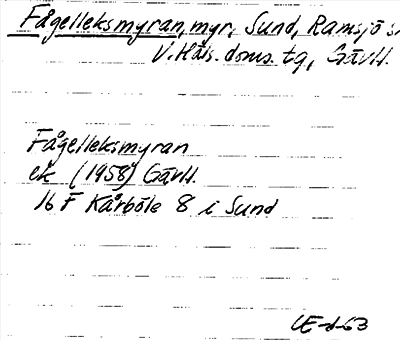 Fågelleksmyran, myr, Sund, Ramsjö s
V. Häls. doms. tg, Gävll.
Fågelleksmyran
ek (1958) Gävll.
16 F Kårböle 8 i Sund
UE-d-63